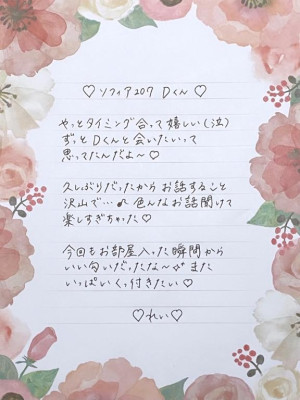 ♡ ソフィア207 Dくん ♡
やっとタイミング合って嬉しい(泣)
ずっとDくんと会いたいって
思ってたんだよ〜♡
久しぶりだったからお話すること
沢山で…♪ 色んなお話聞けて
楽しすぎちゃった♡
今回もお部屋入った瞬間から
いい匂いだったな〜✨また
いっぱいくっ付きたい♡
♡れい♡